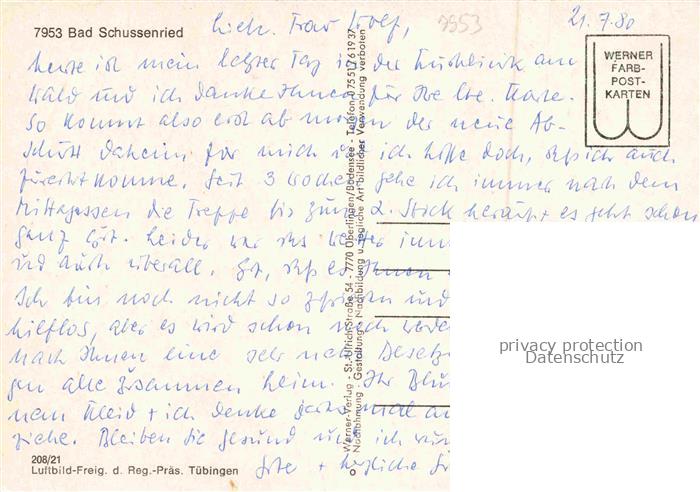 21.7.80
7953
7953 Bad Schussenried
Lieb. Frau Wolf,
heute ist mein letzter Tag in der Kurklinik am
Wald und ich danke Ihnen für Ihre lbe. Karte.
So kommt also erst ab morgen der neue Ab-
schnitt daheim, für mich u. ich hoffe doch, daß ich auch
zurechtkomme. Seit 3 Wochen gehe ich immer nach dem
Mittagessen die Treppe bis zum 2. Stock herauf + es geht schon
ganz gut. Leider war das Wetter
und auch überall. Gut, daß es Ihnen
Ich bin noch nicht so zufrieden und
hilflos, aber es wird schon noch werden
nach Ihnen eine sehr nette
gen alle zusammen heim. Ihr
Kleid + ich denke jedes mal an
ziehe. Bleiben Sie gesund und ich
Gute + herzliche
WERNER
FARB-
POST-
KARTEN
Werner-Verlag - St.-Ulrich-Straße 54 - 7770 Überlingen/Bodensee - Telefon 07551/61937
Nachahmung - Gestaltung - Nachbildung u. jegliche Art bildlicher Verwendung verboten
privacy protection
Datenschutz
208/21
Luftbild-Freig. d. Reg.-Präs. Tübingen